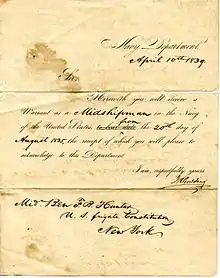 Navy Department,
April 10th 1839.
Sir,
Herewith you will receive a
Warrant as a Midshipman in the Navy
from
of the United States, to bear date the 20th day of
August 1835, the receipt of which you will please to
acknowledge to this Department.
I am, respectfully yours
JKPaulding
Mid. Ben F. B. Hunter
U. S. frigate Constitution
New York